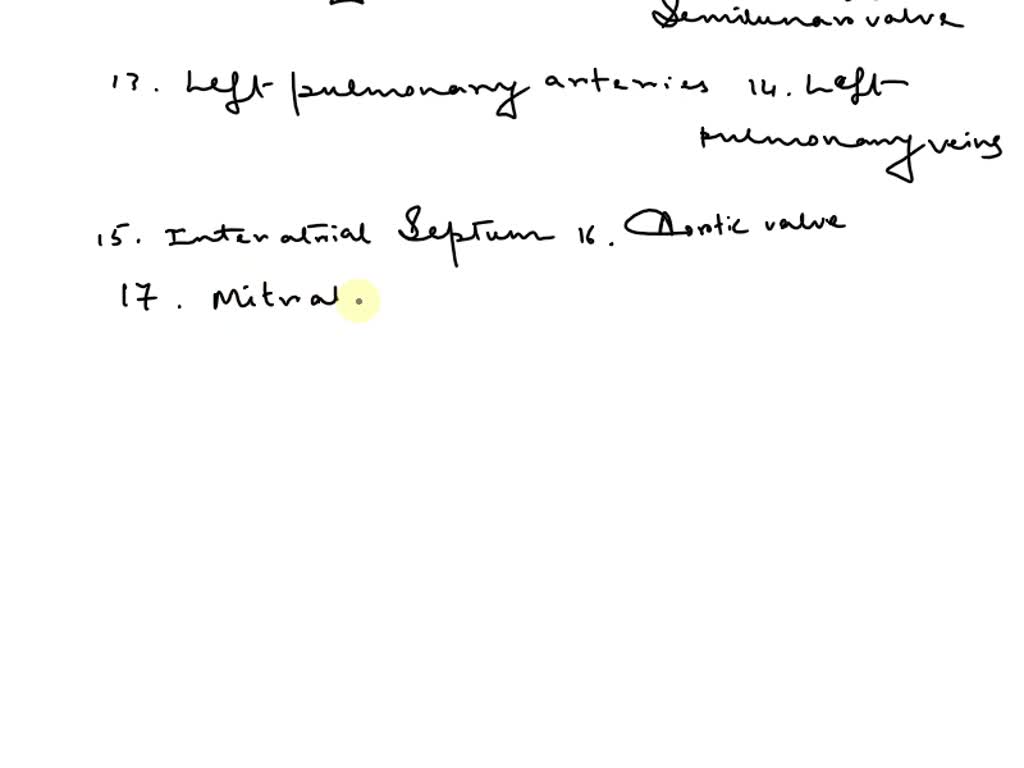 Semilunar valve
13. Left pulmonary arteries 14. Left
pulmonary veins
15. Interatrial Septum 16. Aortic valve
17. Mitral